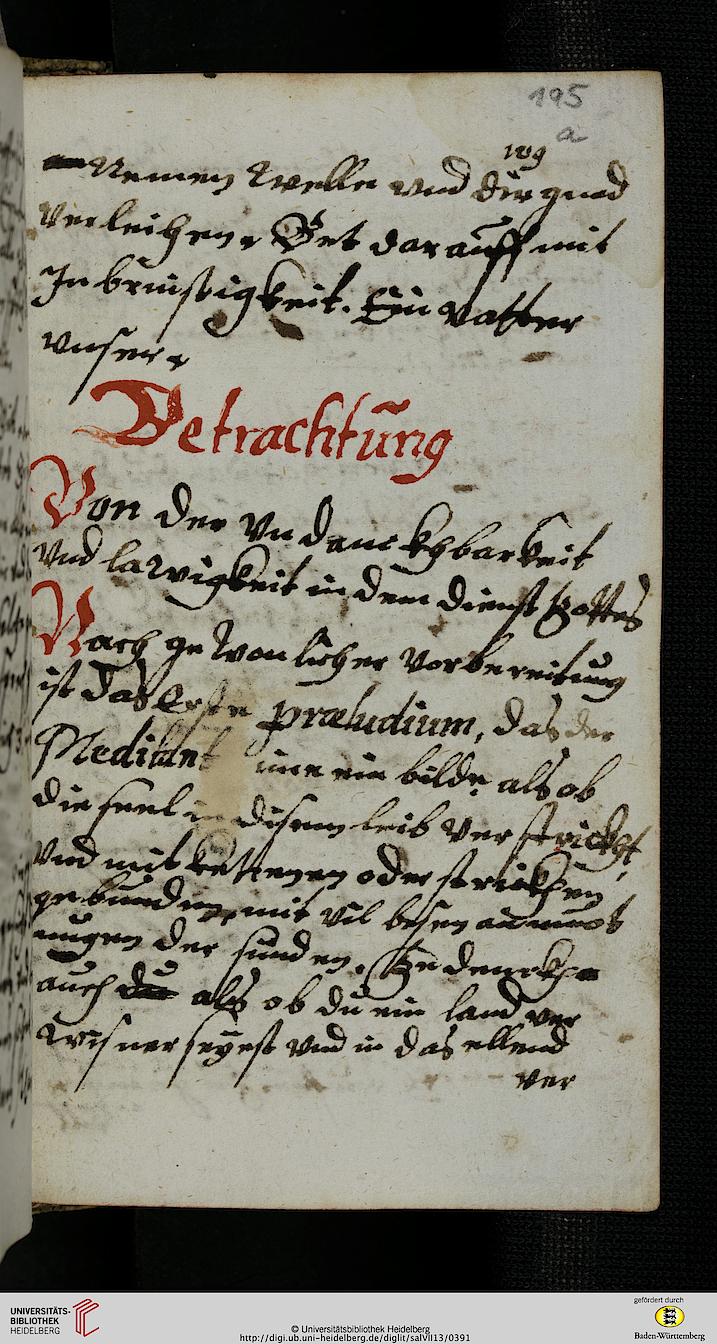 195
a
199
Nemen welle vnd dir gnad
verleihen. Bet darauff mit
Inbrinstigkeit. Ein vatter
vnser.
Betrachtung
Von der Vndanckhbarkeit
vnd lawigkeit in dem dienst Gottes
Nach gewonlicher vorbereitung
ist das Erste præludium, das der
Meditant ime ein bilde als ob
die seel in disem leib verstrickht,
vnd mit kettenen oder strickhen
gebunden, mit vil besen anmuot
ungen der sunden. Gedenckhe
auch als ob du ein land ver
wisner seyest vnd in das ellend
ver
UNIVERSITÄTS-
BIBLIOTHEK
HEIDELBERG
© Universitätsbibliothek Heidelberg
http://digi.ub.uni-heidelberg.de/diglit/salVII13/0391
gefördert durch
Baden-Württemberg